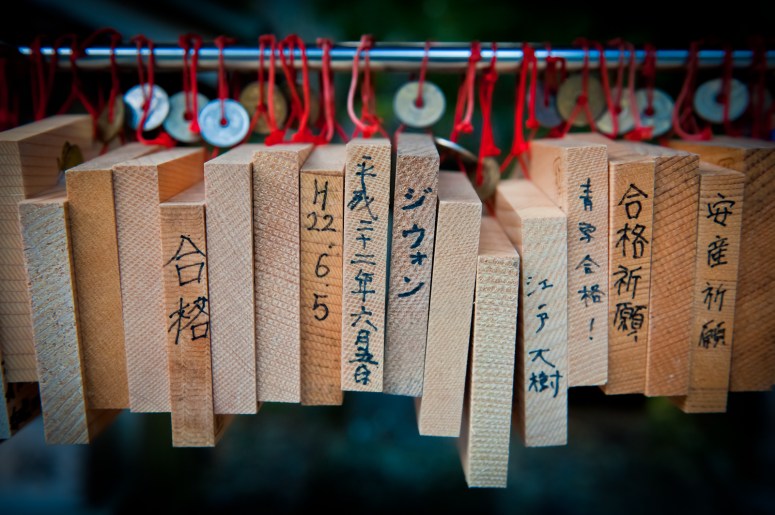 合格
H22.6.5
平成二十二年六月五日
ジウォン
江戸大樹
青学合格!
合格祈願!
安産祈願